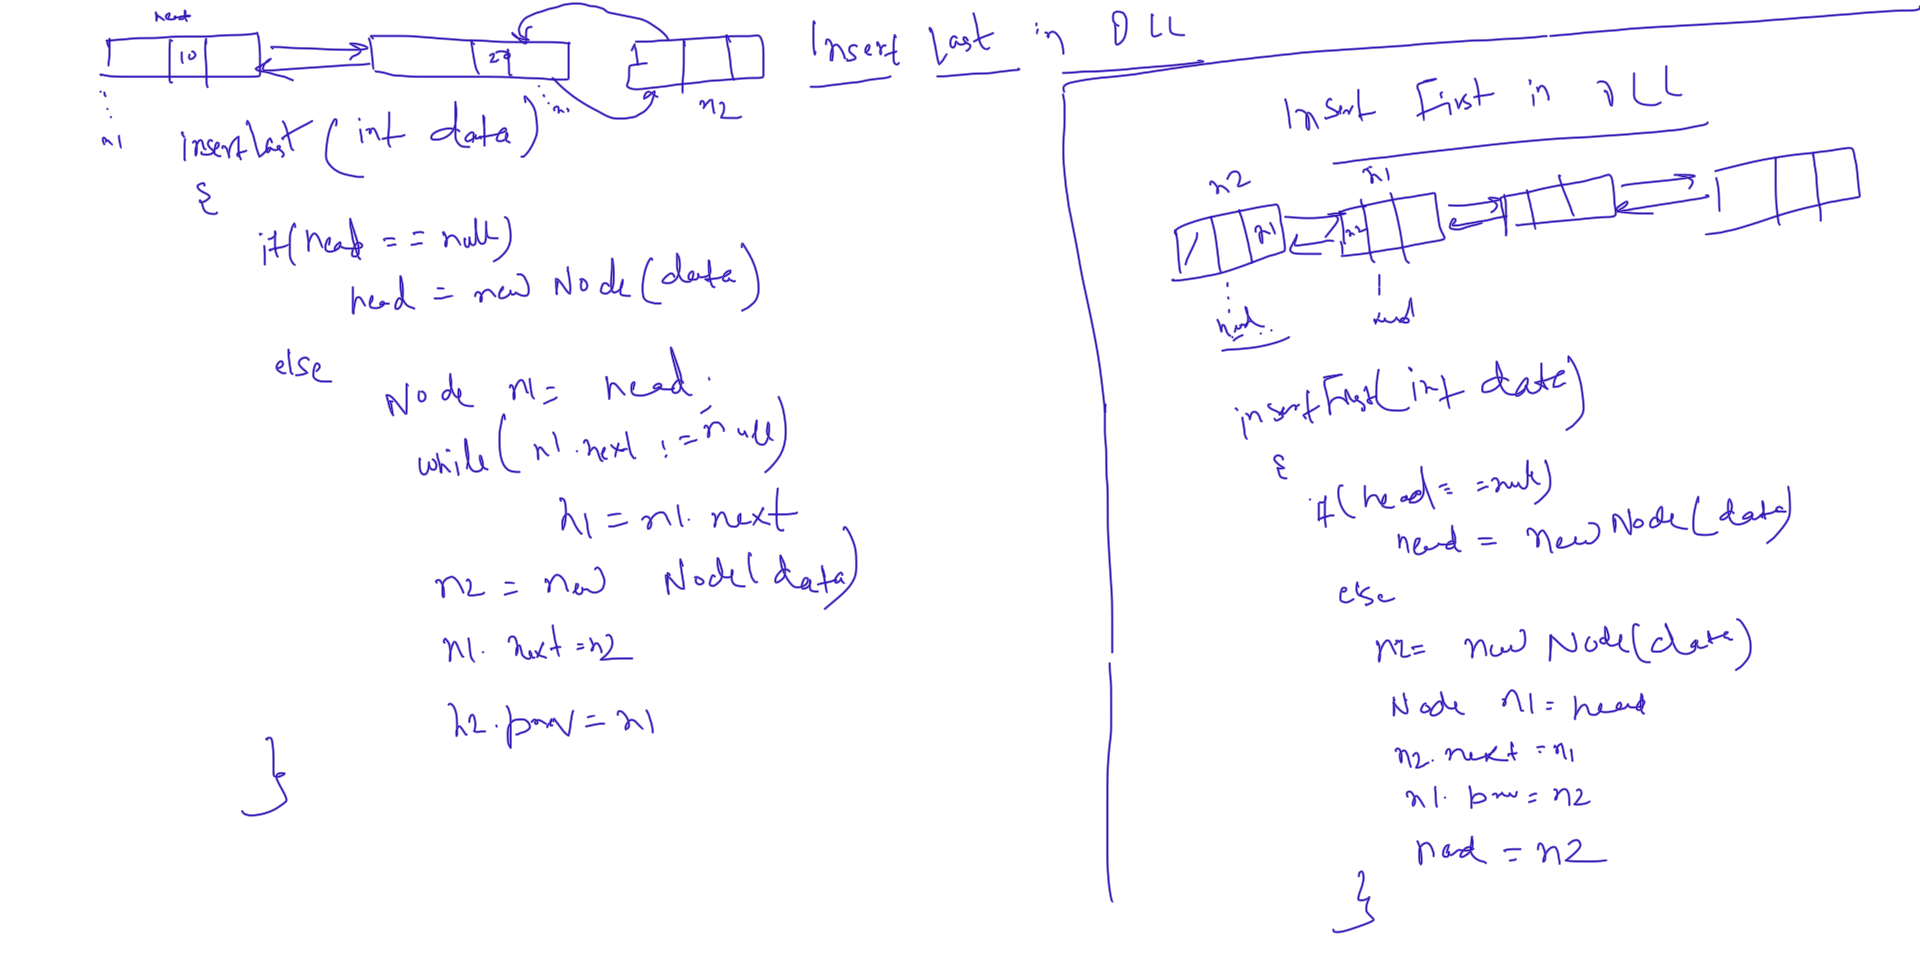 head
10
20
n1
n1
n2
Insert Last in DLL
insertlast(int data)
{
if(head == null)
head = new Node(data)
else
Node n1= head;
while(n1.next != null)
n1 = n1.next
n2 = new Node(data)
n1.next=n2
n2.prev=n1
}
Insert First in DLL
n2
n1
n1
n2
head
head
insertFirst(int data)
{
if(head==null)
head = new Node(data)
else
n2= new Node(data)
Node n1=head
n2.next=n1
n1.prev=n2
head = n2
}